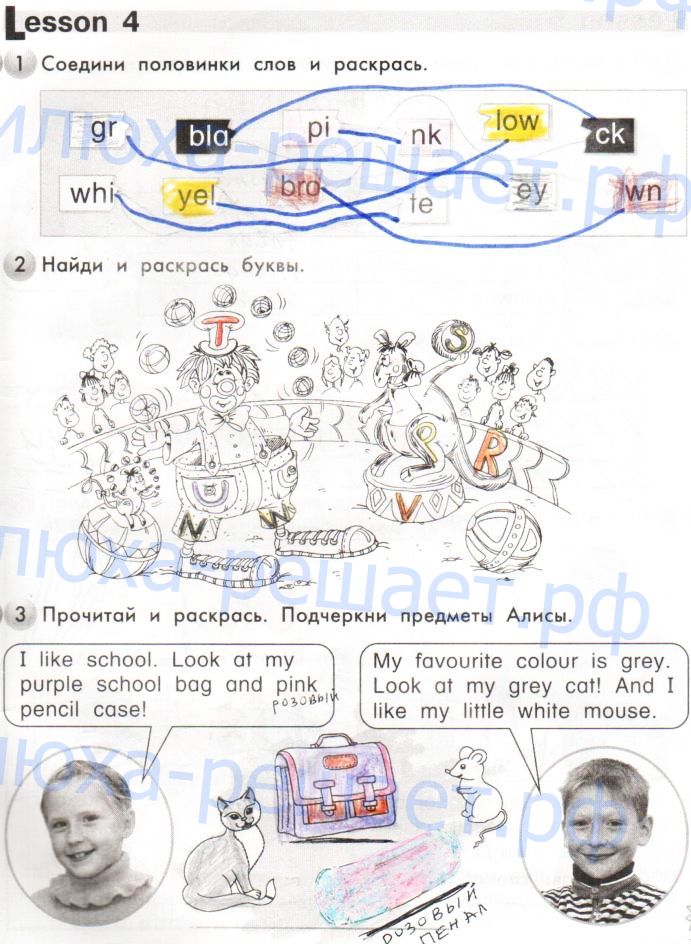 Lesson 4
1 Соедини половинки слов и раскрась.
gr bla pi nk low ck
whi yel bro te ey wn
2 Найди и раскрась буквы.
T
S
P R
U V
N W
3 Прочитай и раскрась. Подчеркни предметы Алисы.
I like school. Look at my
purple school bag and pink
розовый
pencil case!
My favourite colour is grey.
Look at my grey cat! And I
like my little white mouse.
розовый
пенал
илюха-решает.рф
илюха-решает.рф
илюха-решает.рф